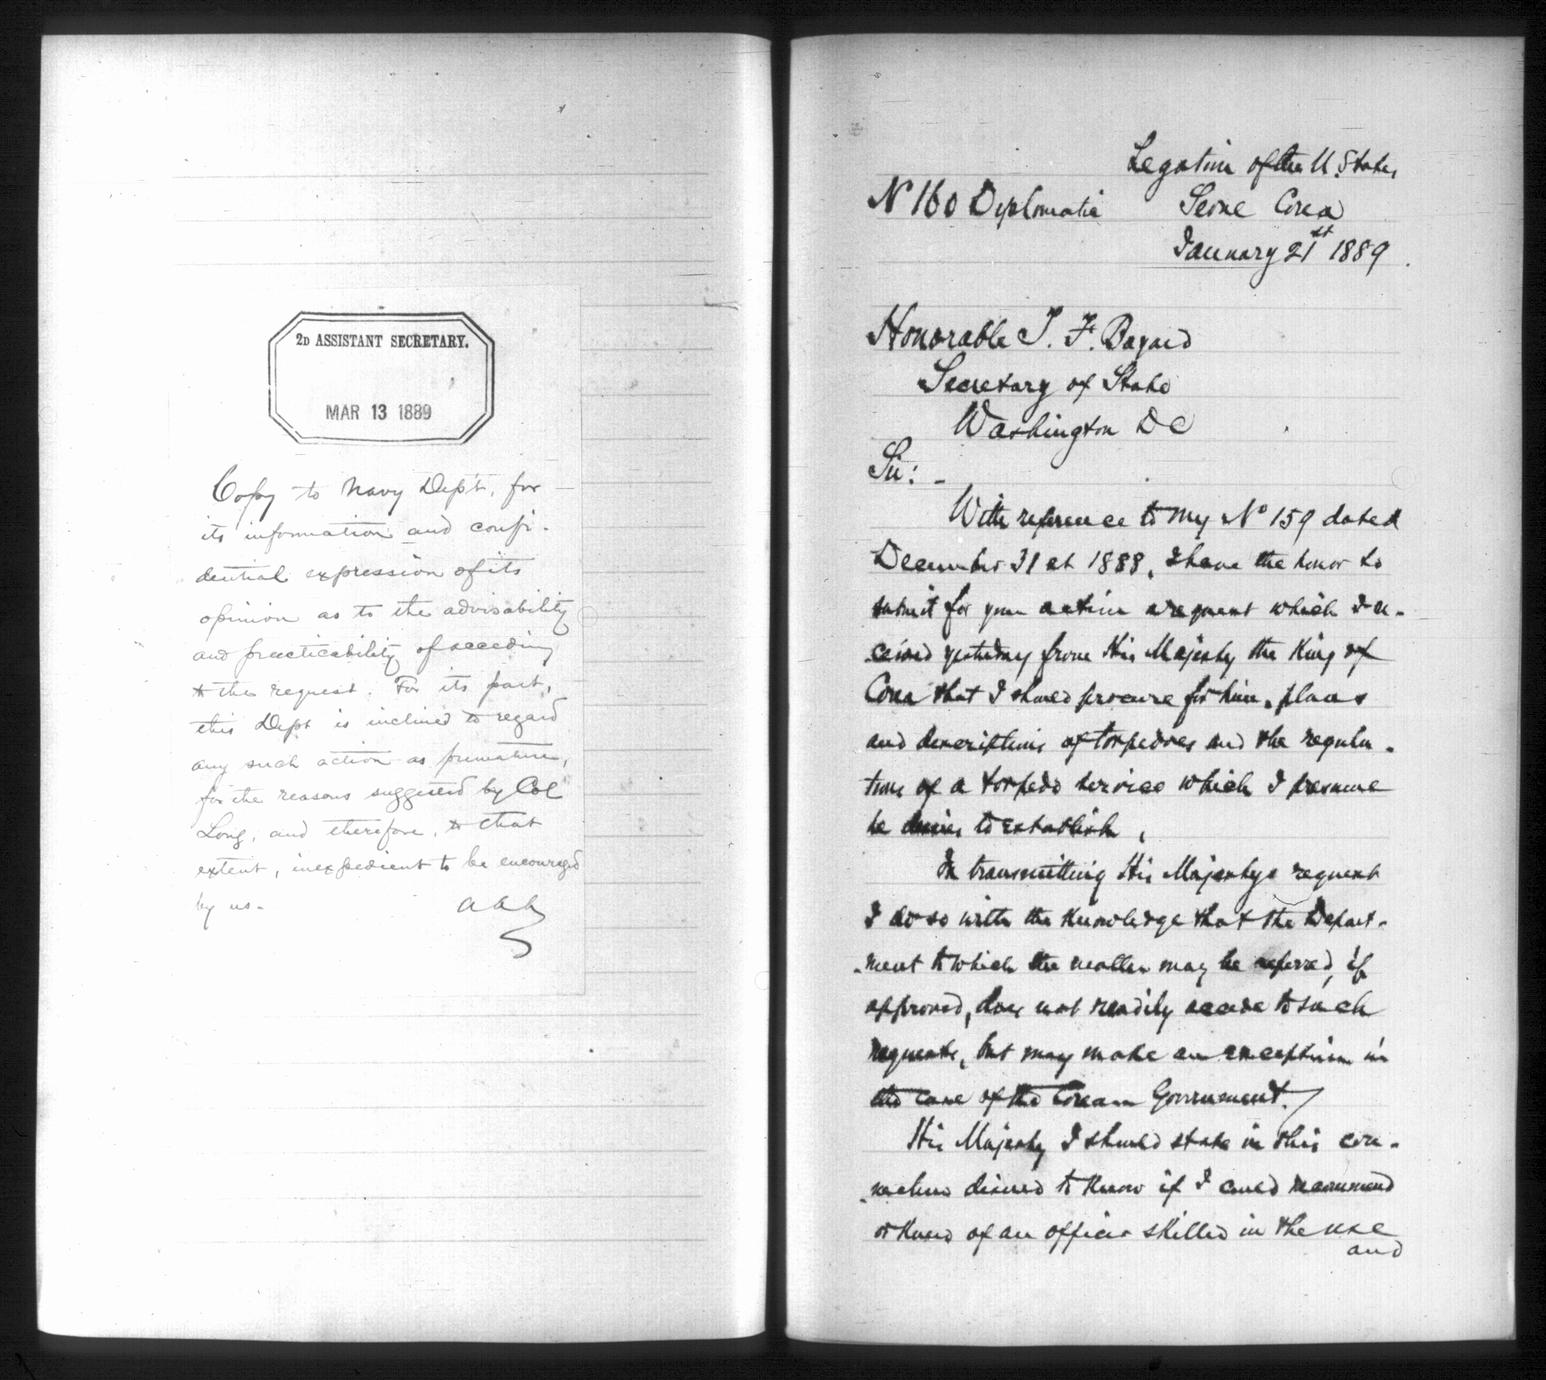 2D ASSISTANT SECRETARY.
MAR 13 1889
Copy to Navy Dep't, for
its information and confi-
dential expression of its
opinion as to the advisability
and practicability of acceding
to the request. For its part,
this Dept is inclined to regard
any such action as premature,
for the reasons suggested by Col
Long, and therefore, to that
extent, inexpedient to be encouraged
by us.
Legation of the U. States
No 160 Diplomatic
Seoul Corea
January 21st 1889.
Honorable T. F. Bayard
Secretary of State
Washington DC
Sir: -
With reference to my No 159 dated
December 31st 1888, I have the honor to
submit for your action a request which I re-
ceived yesterday from His Majesty the King of
Corea that I should procure for him, plans
and descriptions of torpedoes and the regula-
tions of a torpedo service which I presume
he desires to establish.
In transmitting His Majestys request
I do so with the knowledge that the Depart-
ment to which the matter may be referred, if
approved, does not readily accede to such
requests, but may make an exception in
the case of the Corean Government.
His Majesty I should state in this con-
nection desired to know if I could recommend
or knew of an officer skilled in the use
and